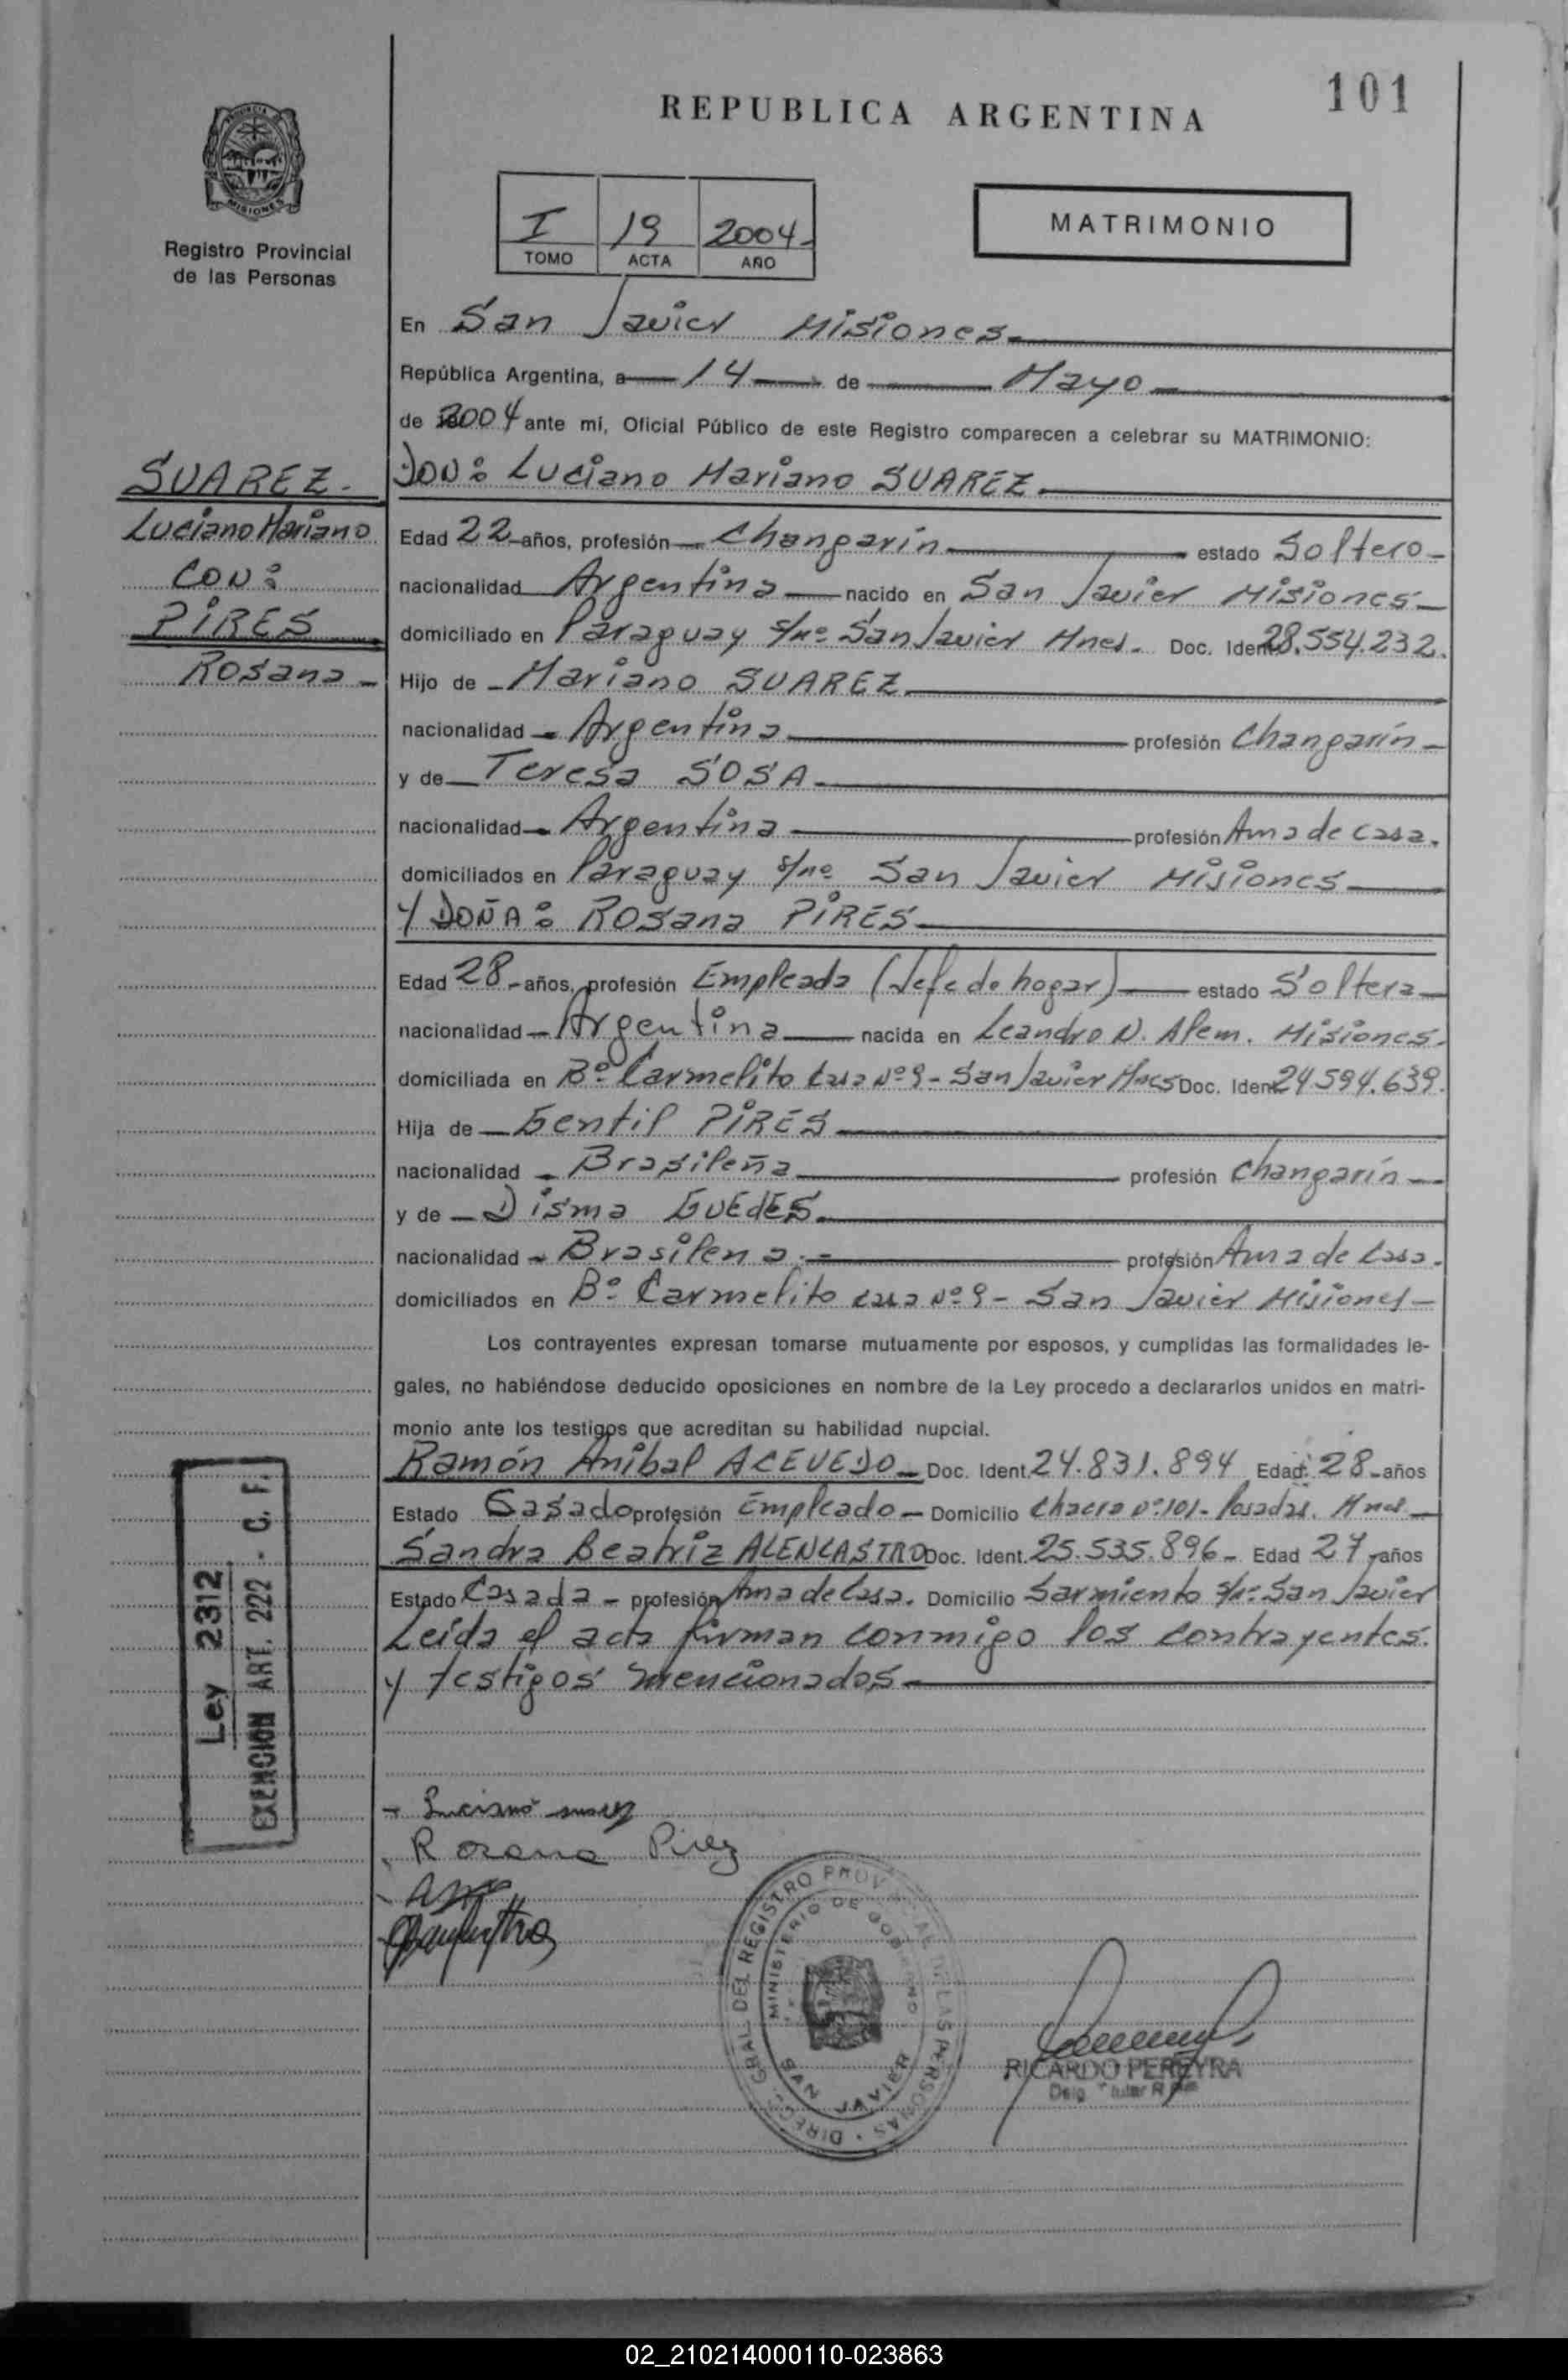 101
REPUBLICA ARGENTINA
MISIONES
Registro Provincial
de las Personas
I 19 2004
TOMO ACTA AÑO
MATRIMONIO
En San Javier Misiones
República Argentina, a 14 de Mayo
de 2004 ante mí, Oficial Público de este Registro comparecen a celebrar su MATRIMONIO:
SUAREZ.
Luciano Mariano
CON:
PIRES
Rosana
DON: Luciano Mariano SUAREZ
Edad 22 años, profesión Changarín estado Soltero
nacionalidad Argentina nacido en San Javier Misiones
domiciliado en Paraguay s/nº San Javier Mnes. Doc. Ident. 28.554.232.
Hijo de Mariano SUAREZ
nacionalidad Argentina profesión Changarín
y de Teresa SOSA
nacionalidad Argentina profesión Ama de casa.
domiciliados en Paraguay s/nº San Javier Misiones
Y DOÑA: Rosana PIRES
Edad 28 años, profesión Empleada (Jefe de hogar) estado Soltera
nacionalidad Argentina nacida en Leandro N. Alem. Misiones.
domiciliada en Bº Carmelito Casa Nº 9 - San Javier Mnes Doc. Ident. 24.594.639.
Hija de Gentil PIRES
nacionalidad Brasileña profesión Changarín
y de Disma GUEDES
nacionalidad Brasilena profesión Ama de Casa.
domiciliados en Bº Carmelito casa Nº 9 - San Javier Misiones
Los contrayentes expresan tomarse mutuamente por esposos, y cumplidas las formalidades le-
gales, no habiéndose deducido oposiciones en nombre de la Ley procedo a declararlos unidos en matri-
monio ante los testigos que acreditan su habilidad nupcial.
Ramón Anibal ACEVEDO Doc. Ident. 24.831.894 Edad 28 años
Estado Casado profesión Empleado Domicilio Chacra Nº 101 - Posadas. Mnes.
Sandra Beatriz ALENCASTRO Doc. Ident. 25.535.896 Edad 27 años
Estado Casada profesión Ama de Casa. Domicilio Sarmiento s/nº San Javier
Leída el acta firman conmigo los contrayentes.
y testigos mencionados
Ley 2312
EXENCION ART. 222 - C. F.
Luciano Suarez
Rosana Pirez
DIRECC. GRAL. DEL REGISTRO PROVINCIAL DE LAS PERSONAS
MINISTERIO DE GOBIERNO
SAN JAVIER
RICARDO PEREYRA
02_210214000110-023863